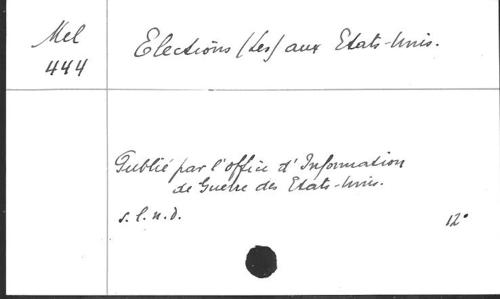 Mel
444
Elections (Les) aux Etats-Unis.
Publié par l'Office d'Information
de Guerre des Etats-Unis.
s.l.n.d.
12°